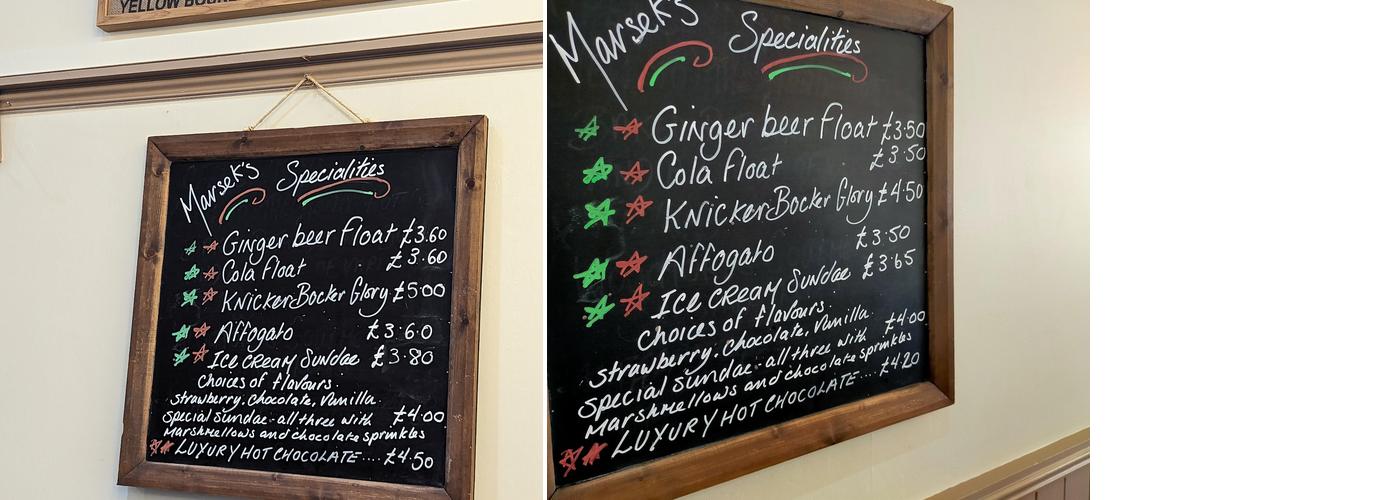 YELLOW
Marsek's Specialities
Ginger beer Float £3.60
Cola Float £3.60
KnickerBocker Glory £5.00
Affogato £3.60
ICE CREAM Sundae £3.80
Choices of flavours.
strawberry. Chocolate, Vanilla.
Special Sundae - all three with £4.00
Marshmellows and chocolate sprinkles
LUXURY HOT CHOCOLATE.... £4.50
Marsek's Specialities
Ginger beer Float £3.50
Cola Float £3.50
KnickerBocker Glory £4.50
Affogato £3.50
ICE CREAM Sundae £3.65
Choices of flavours.
strawberry. Chocolate, Vanilla.
Special Sundae - all three with £4.00
Marshmellows and chocolate sprinkles
LUXURY HOT CHOCOLATE.... £4.20